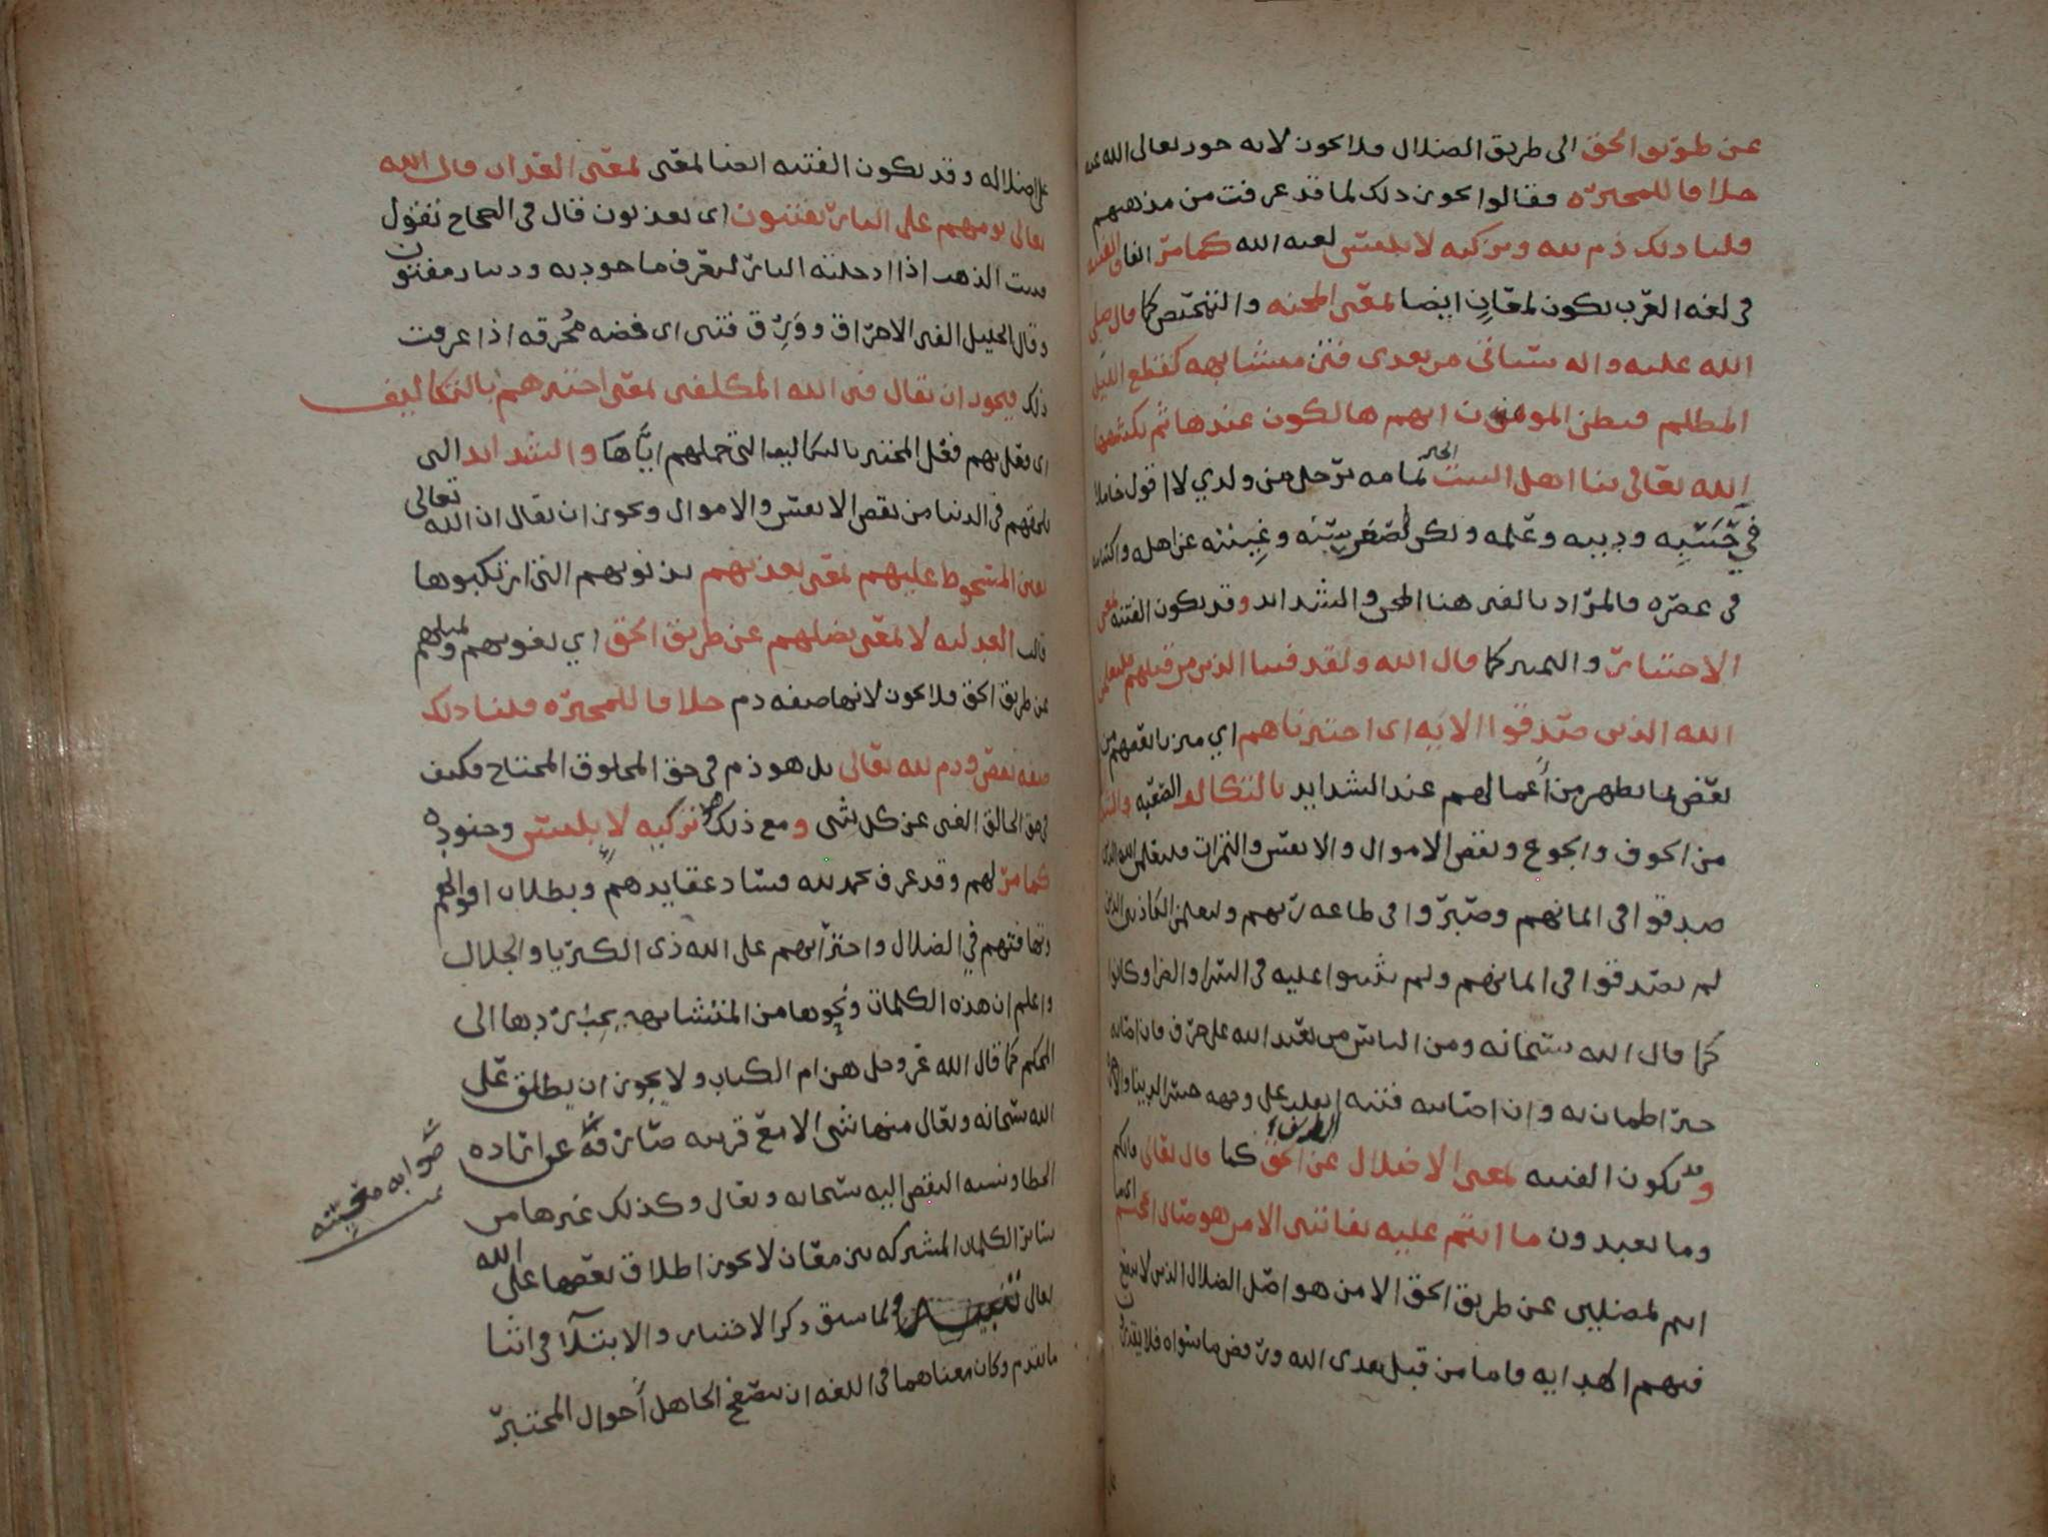 عن طريق الحق الى طريق الضلال فلا يجوز لانه جور تعالى الله عنه
خلافا للمجبرة فقالوا يجوز ذلك لما قد عرفت من مذهبهم
قلنا ذلك ذم لله وتزكيه لابليس لعنه الله كما مر انفا والفتنه
في لغه العرب تكون لمعانٍ ايضا لمعنى المحنه والتمحيص كما قال صلى
الله عليه واله ستاتي من بعدي فتن متشابهه كقطع الليل
المظلم فيظن المومنون انهم هالكون عندها ثم يكشفها
الله تعالى بنا اهل البيت برجل من ولدي لا اقول خاملا
في حسبه ودينه وعلمه ولكن لصغر سنه وغيبته عن اهله واكتتامه
في عصره فالمراد بالفتن هنا المحن والشدائد وقد تكون الفتنه بمعنى
الاختبار والتمييز كما قال الله ولقد فتنا الذين من قبلهم فليعلمن
الله الذين صدقوا الايه اي اختبرناهم اي ميزنا بعضهم من
بعض بما يظهر من أعمالهم عند الشدايد بالتكاليف الصعبه
من الخوف والجوع ونقص الاموال والانفس والثمرات فليعلمن الله الذين
صدقوا في ايمانهم وصبروا في طاعه ربهم وليعلمن الكاذبين الذين
لم يصدقوا في ايمانهم ولم يثبتوا عليه في السرا والضرا وكانوا
كما قال الله سبحانه ومن الناس من يعبد الله على حرف فان اصابه
خير اطمان به وان اصابته فتنه انقلب على وجهه خسر الدنيا والاخره
وقد تكون الفتنه لمعنى الاضلال عن طريق الحق كما قال تعالى فانكم
وما تعبدون ما انتم عليه بفاتنين الا من هو صال الجحيم اي ما
انتم لمضلين عن طريق الحق الا من هو اصل الضلال الذين لا ينفع
فيهم الهدايه واما من قبل هدى الله ورفض ما سواه فلا يقدرون
على اضلاله وقد تكون الفتنه ايضا لمعنى لمعنى العذاب قال الله
تعالى يومهم على النار يفتنون اي يعذبون قال في الصحاح تقول
فتنت الذهب اذا ادخلته النار لتعرف ما جودته ودينار مفتون
وقال الخليل الفتن الاحراق ووَرِق فتين اي فضه مُحرقه اذا عرفت
ذلك فيجوز ان يقال فتن الله المكلفين لمعنى اختبرهم بالتكاليف
اي فعل بهم فعل المختبر بالتكاليف التي حملهم ايّاها والشدائد التي
تلحقهم في الدنيا من نقص الانفس والاموال ويجوز ان يقال ان الله تعالى
يفتن المسخوط عليهم لمعنى يعذبهم بذنوبهم التي ارتكبوها
قالت العدليه لا لمعنى يضلهم عن طريق الحق اي يغويهم ويميلهم
عن طريق الحق فلا يجوز لانها صفه ذم خلافا للمجبره قلنا ذلك
صفه نقص وذم لله تعالى بل هو ذم في حق المخلوق المحتاج فكيف
في حق الخالق الغني عن كل شي ومع ذلك هو تزكيه لابليس وجنوده
كما مر لهم وقد عرف بحمد لله فساد عقايدهم وبطلان اقوالهم
وتهافتهم في الضلال واجترائهم على الله ذي الكبريا والجلال
واعلم ان هذه الكلمات ونحوها من المتشابهه يجب ردها الى
المحكم كما قال الله عز وجل هن ام الكتاب ولا يجوز ان يطلق على
الله سبحانه وتعالى منها شي الا مع قرينه صارفة عن اراده
الخطا ونسبه النقص اليه سبحانه وتعالى وكذلك غيرها من
سائر الكلمات المشتركه بين معان لا يجوز اطلاق بعضها على الله
تعالى تنبيه ولما سبق ذكر الاختبار والابتلآ في اثنا
ما تقدم وكان معناهما في اللغه ان يتصفح الجاهل أحوال المختبَر
صوابه